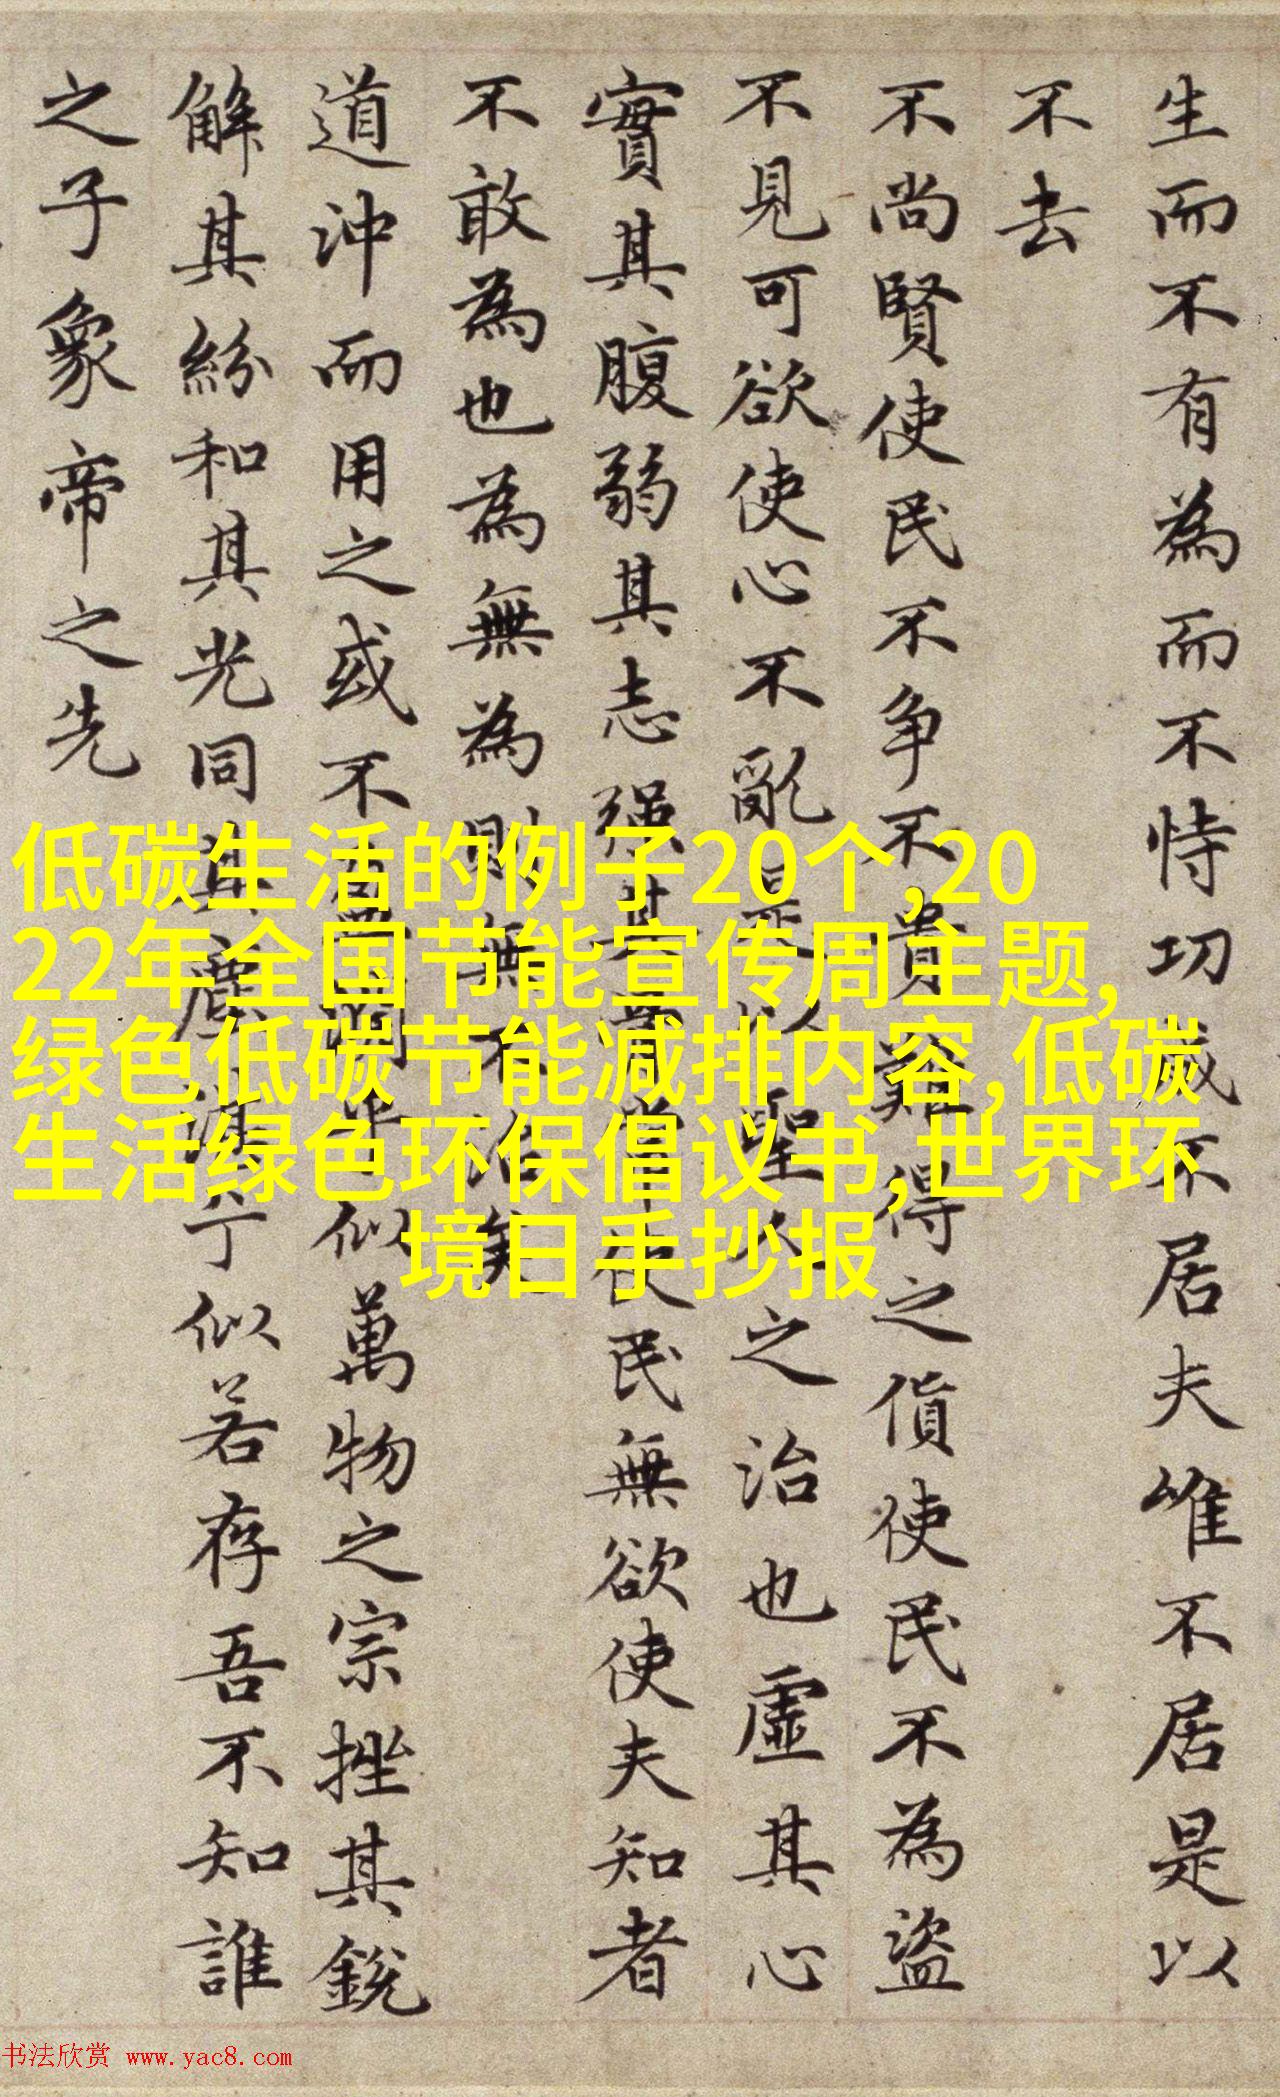 生而不有為而不恃功成不居夫唯不居是以
不去
不尚賢使民不争不貴難得之貨使民不為盜
不見可欲使心不亂是以聖人之治也虛其心
實其腹弱其志强其骨常使民無欲使夫知者
不敢為也為無為則無不治矣
道沖而用之或不盈淵乎似萬物之宗挫其銳
解其紛和其光同其塵湛兮似若存吾不知誰
之子象帝之先
低碳生活的例子20个,20
22年全国节能宣传周主题,
绿色低碳节能减排内容,低碳
生活绿色环保倡议书,世界环
境日手抄报
书法欣赏 www.yac8.com